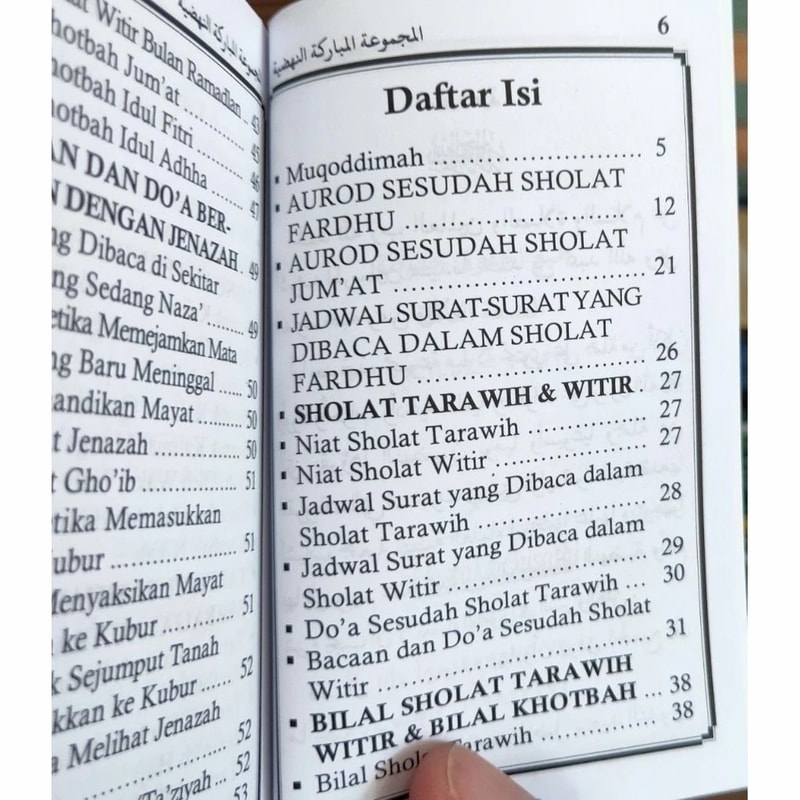 المجموعة المباركة النهضية 6
Daftar Isi
▪ Muqoddimah .......................... 5
▪ AUROD SESUDAH SHOLAT
FARDHU .......................... 12
▪ AUROD SESUDAH SHOLAT
JUM'AT .......................... 21
▪ JADWAL SURAT-SURAT YANG
DIBACA DALAM SHOLAT
FARDHU .......................... 26
▪ SHOLAT TARAWIH & WITIR . 27
▪ Niat Sholat Tarawih .............. 27
▪ Niat Sholat Witir .................. 27
▪ Jadwal Surat yang Dibaca dalam
Sholat Tarawih .................... 28
▪ Jadwal Surat yang Dibaca dalam
Sholat Witir ........................ 29
▪ Do'a Sesudah Sholat Tarawih ... 30
▪ Bacaan dan Do'a Sesudah Sholat
Witir ................................ 31
▪ BILAL SHOLAT TARAWIH
WITIR & BILAL KHOTBAH ... 38
▪ Bilal Tarawih ............. 38
المباركة النهضية
Witir Bulan Ramadlan . 43
hotbah Jum'at ............... 45
hotbah Idul Fitri ............ 46
hotbah Idul Adhha ......... 47
AN DAN DO'A BER-
N DENGAN JENAZAH . 49
ng Dibaca di Sekitar
ng Sedang Naza' ........ 49
etika Memejamkan Mata
ng Baru Meninggal ...... 50
andikan Mayat ........ 50
t Jenazah ............... 50
t Gho'ib ................ 51
tika Memasukkan
ubur .................... 51
Menyaksikan Mayat
ke Kubur ............. 51
k Sejumput Tanah
kkan ke Kubur ...... 52
a Melihat Jenazah
..................... 52
Ta'ziyah ... 52
53